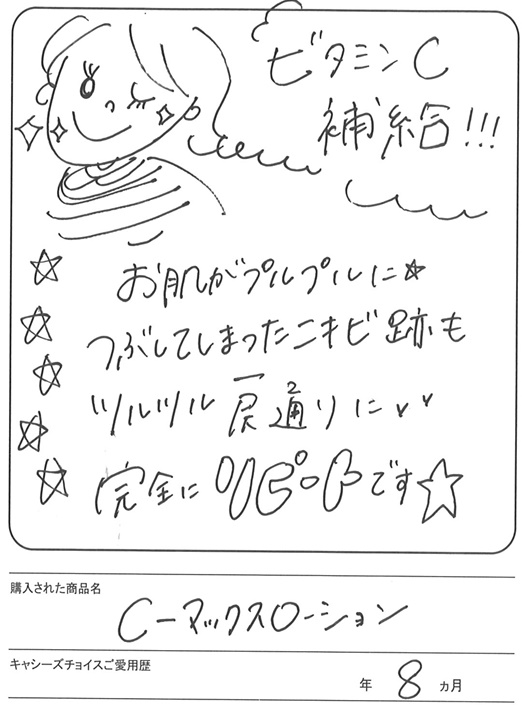 ビタミンC
補給!!!
お肌がプルプルに☆
つぶしてしまったニキビ跡も
ツルツル 元通りに✓✓
完全にリピートです☆
購入された商品名
C-マックスローション
キャシーズチョイスご愛用歴
年 8 ヵ月